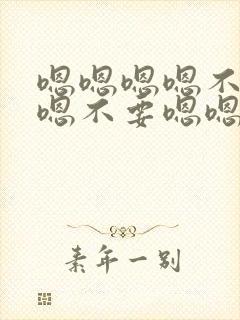 嗯嗯嗯嗯不
嗯不要嗯嗯
素年一别